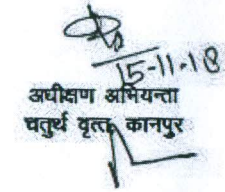 15-11-18
अधीक्षण अभियन्ता
चतुर्थ वृत्त, कानपुर